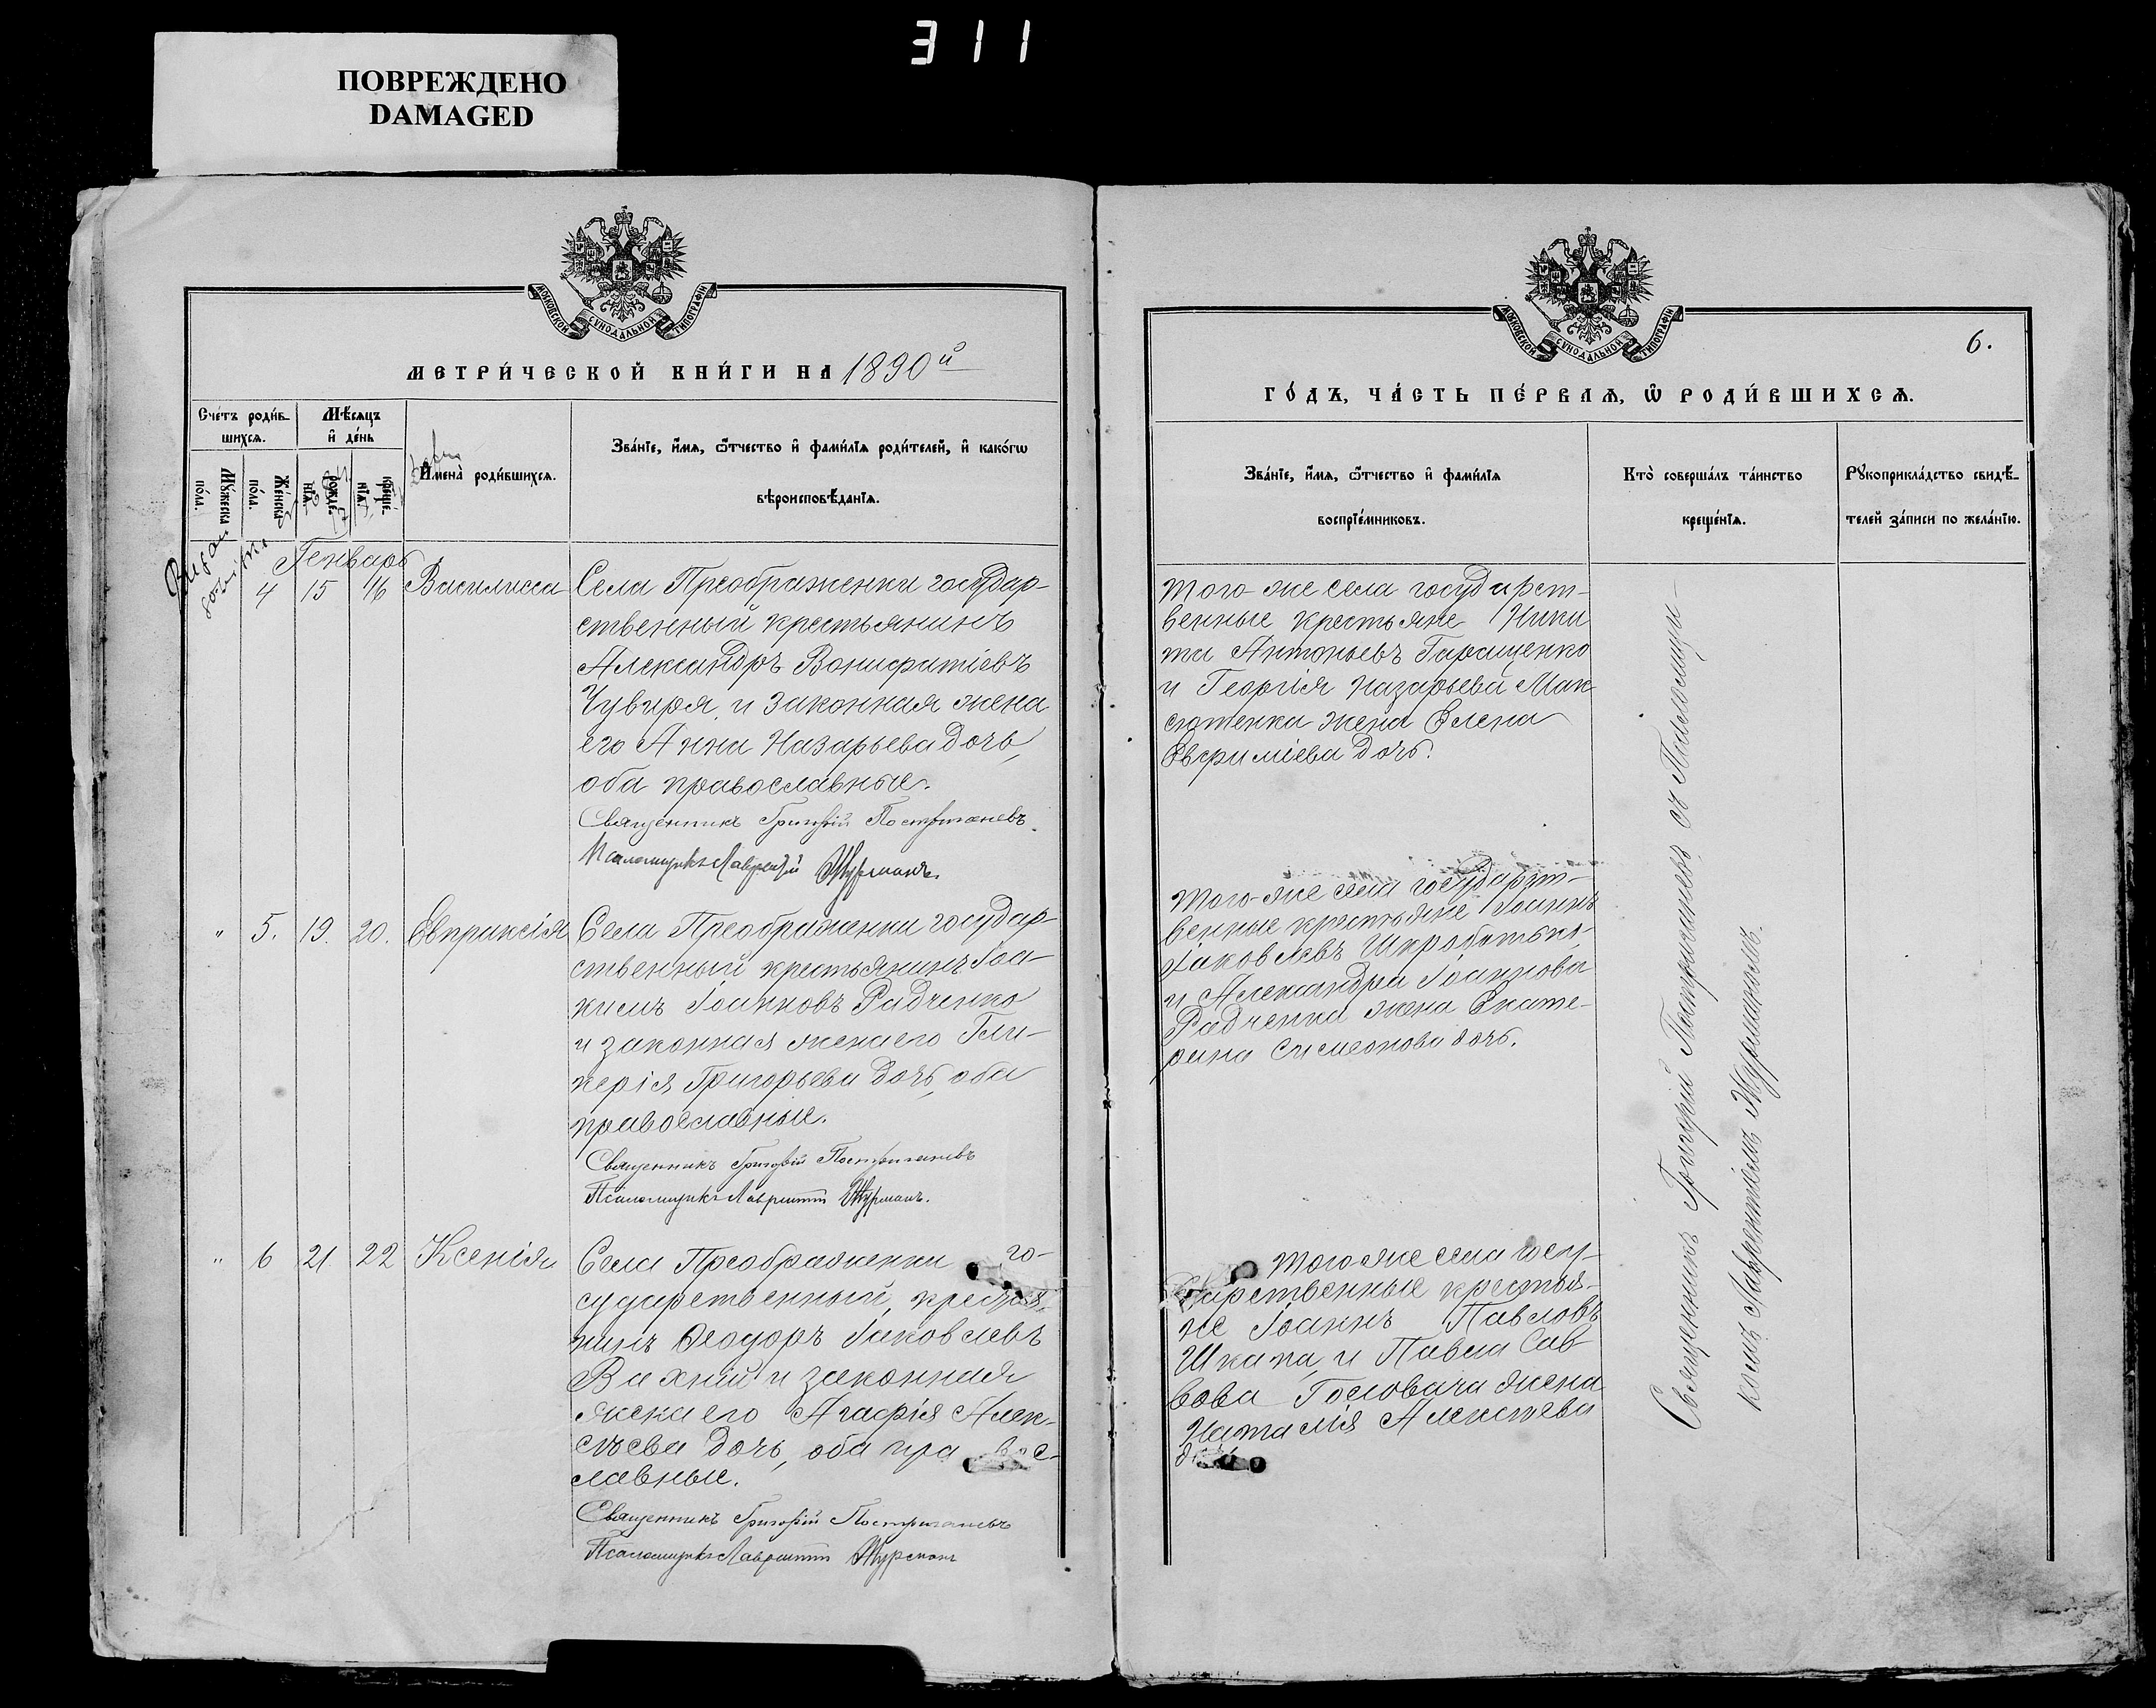 311
ПОВРЕЖДЕНО
DAMAGED
МОСКОВСКОЙ СѴНОДАЛЬНОЙ ТИПОГРАФІИ
МЕТРИ́ЧЕСКОЙ КНИ́ГИ НА 1890й
Сче́тъ роди́в-
шихсѧ.
Мѣ́сѧцъ
и҆ де́нь
Мꙋ́жеска
по́ла.
Же́нска
по́ла.
рожде́-
нїѧ.
креще́-
нїѧ.
И҆мена̀ роди́вшихсѧ.
Зва́нїе, и҆́мѧ, ѻ҆́тчество и҆ фами́лїѧ роди́телей, и҆ како́гѡ
вѣроисповѣ́данїѧ.
Генварь
4 15 16 Василисса Села Преображенки государ-
ственный крестьянинъ
Александръ Вонифатіевъ
Чувиря, и законная жена
его Анна Назарьева дочь,
оба православные.
Священникъ Григорій Постригачевъ.
Псаломщикъ Лаврентій Журманъ.
" 5. 19. 20. Евпраксія Села Преображенки государ-
ственный крестьянинъ Іоа-
кимъ Іоанновъ Радченко
и законная жена его Гли-
керія Григорьева дочь, оба
православные.
Священникъ Григорій Постригачевъ
Псаломщикъ Лаврентій Журманъ.
" 6 21. 22 Ксенія Села Преображенки го-
сударственный крестья-
нинъ Ѳеодоръ Іаковлевъ
Вахній и законная
жена его Агафія Алек-
сѣева дочь, оба правос-
лавные.
Священникъ Григорій Постригачевъ
Псаломщикъ Лаврентій Журманъ
МОСКОВСКОЙ СѴНОДАЛЬНОЙ ТИПОГРАФІИ
6.
ГО́ДЪ, ЧА́СТЬ ПЕ́РВАѦ, Ѡ҆ РОДИ́ВШИХСѦ.
Зва́нїе, и҆́мѧ, ѻ҆́тчество и҆ фами́лїѧ
воспрїе́мниковъ.
Кто̀ соверша́лъ та́инство
креще́нїѧ.
Рꙋкоприкла́дство свидѣ́-
телей за́писи по жела́нїю.
того-же села государст-
венные крестьяне Ники
та Антоньевъ Гаращенко
и Георгія Назарьева Мак
сютенка жена Елена
Евфиміева дочь.
того-же села государст-
венные крестьяне Іоаннъ
Іаковлевъ Шкробитько
и Александра Іоаннова
Радченка жена Екате-
рина Симеонова дочь.
того же села госу-
дарственные крестья-
не Іоаннъ Павловъ
Шкапа, и Павла Сав
вова Головача жена
Наталія Алексѣева
Священникъ Григорій Постригачевъ съ Псаломщи-
комъ Лаврентіемъ Журманомъ.